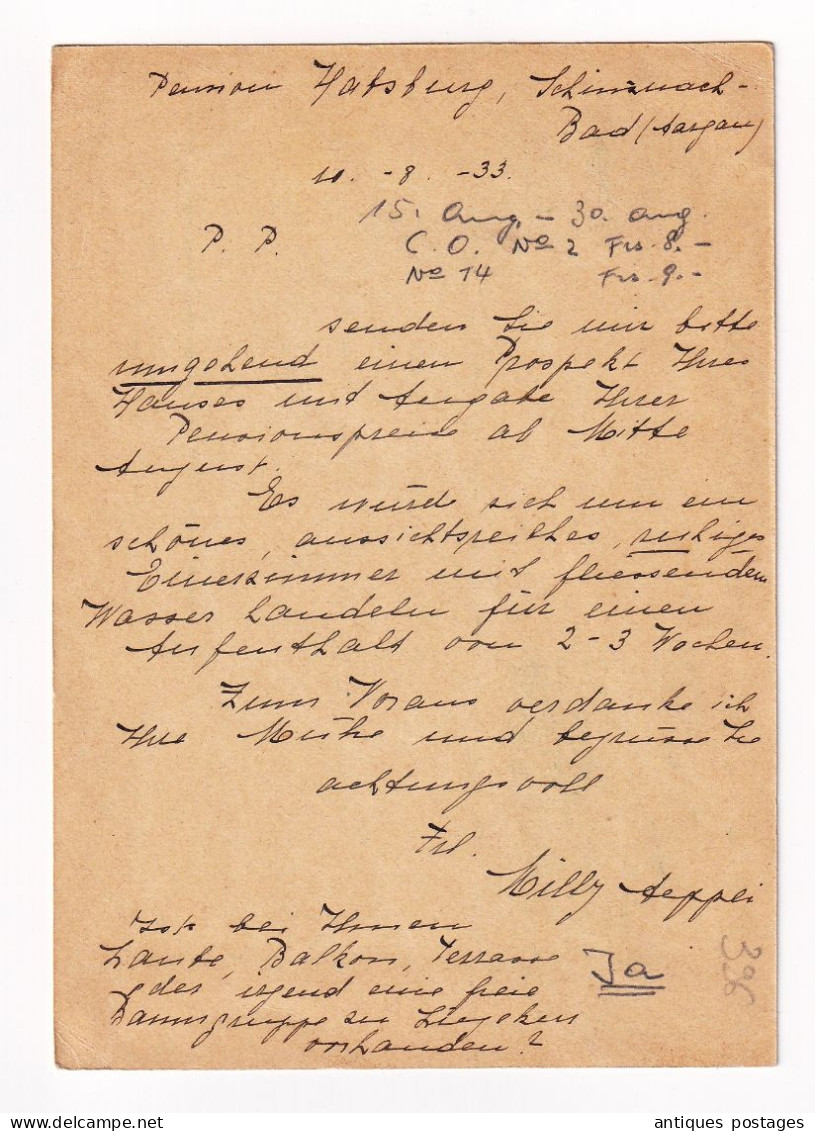 Pension Habsburg, Schinznach-
Bad (Aargau)
10. -8. -33.
15. Aug. - 30. Aug.
P. P. C. O. No 2 Frs. 8.-
No 14 Frs. 9.-
senden Sie mir bitte
umgehend einen Prospekt Ihres
Hauses mit Angabe Ihrer
Pensionspreise ab Mitte
August.
Es würde sich um ein
schönes, aussichtsreiches, ruhiges
Einerzimmer mit fliessendem
Wasser handeln für einen
Aufenthalt von 2-3 Wochen.
Zum Voraus verdanke ich
Ihre Mühe und begrüsse Sie
achtungsvoll
Frl.
Milly Aeppli
Ist bei Ihnen
Laube, Balkon, Terrasse
oder irgend eine freie
Baumgruppe zu Liegekur
vorhanden?
Ja
396
antiques postages